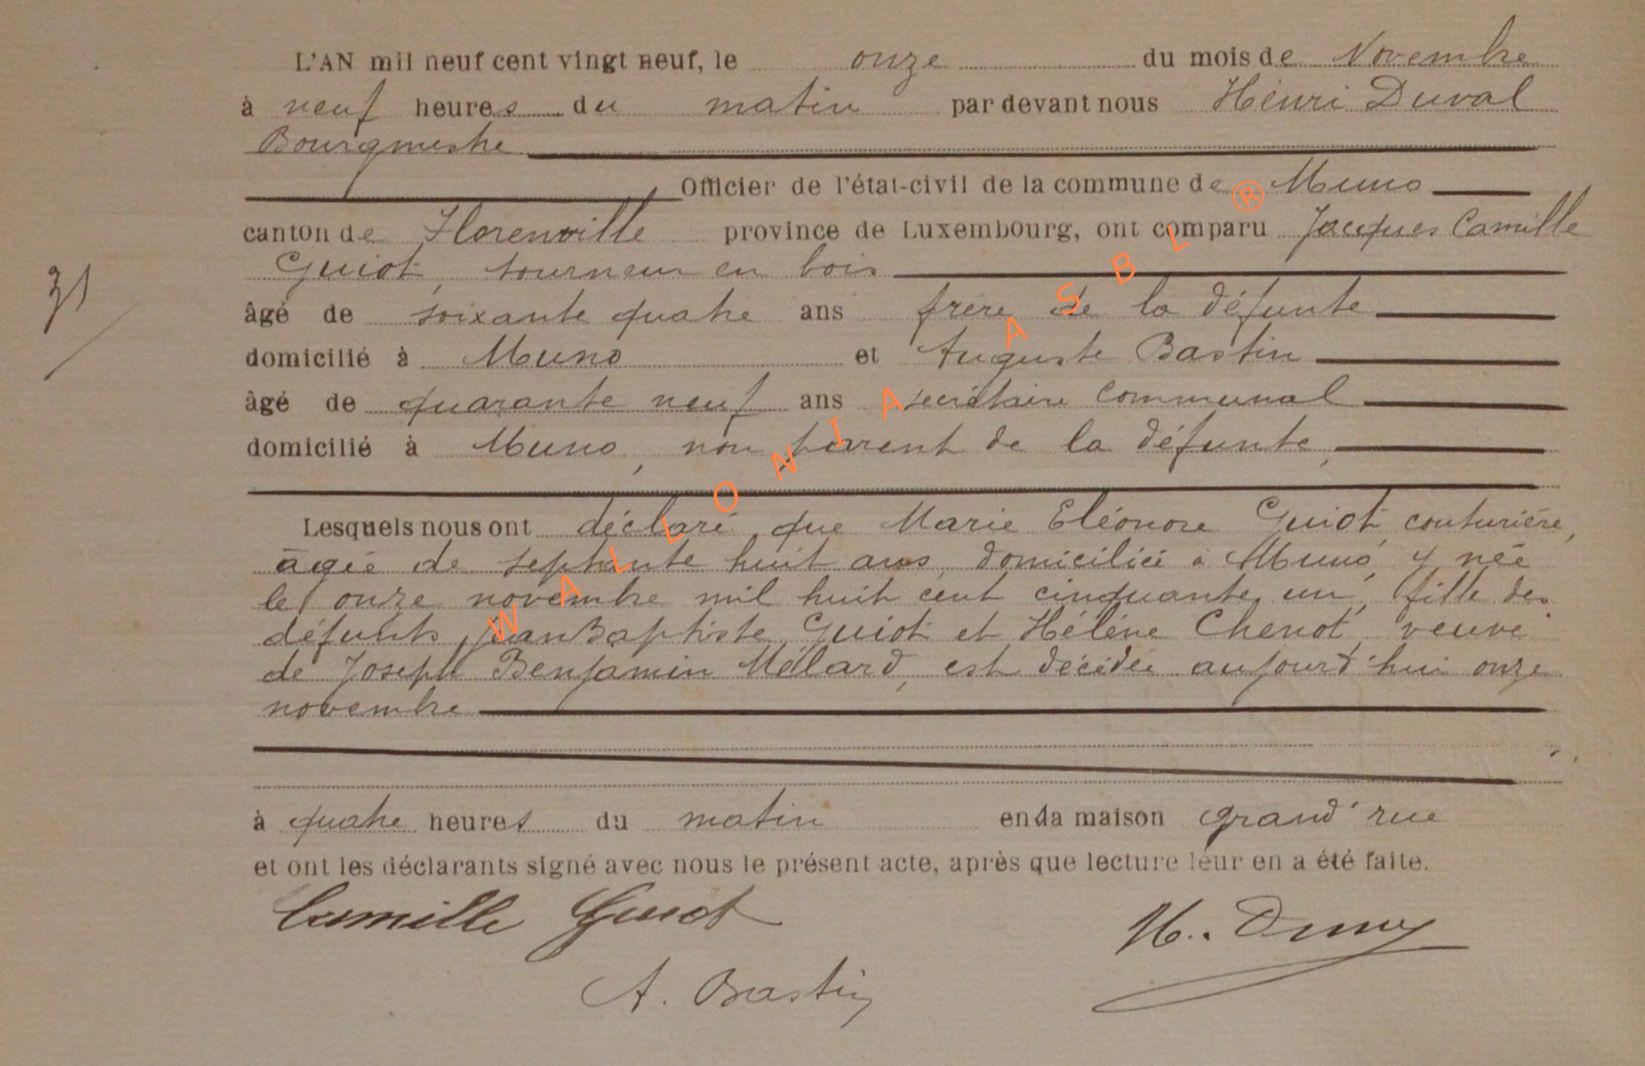 L'AN mil neuf cent vingt neuf, le onze du mois de Novembre
à neuf heures du matin par devant nous Henri Duval
Bourgmestre
Officier de l'état-civil de la commune de Muno
canton de Florenville province de Luxembourg, ont comparu Jacques Camille
Guiot, tourneur en bois
31
âgé de soixante quatre ans frère de la défunte
domicilié à Muno et Auguste Bastin
âgé de quarante neuf ans secrétaire communal
domicilié à Muno, non parent de la défunte,
Lesquels nous ont déclaré que Marie Eléonore Guiot, couturière,
âgée de septante huit ans, domiciliée à Muno, y née
le onze novembre mil huit cent cinquante un, fille des
défunts Jean Baptiste Guiot et Hélène Chenot, veuve
de Joseph Benjamin Mélard, est décédée aujourd'hui onze
novembre
à quatre heures du matin en la maison grand'rue
et ont les déclarants signé avec nous le présent acte, après que lecture leur en a été faite.
Camille Guiot
H. Duval
A. Bastin
WALLONIA ASBL ®